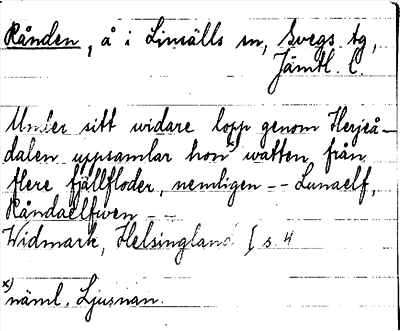 Rånden, å i Linsälls sn, Svegs tg,
Jämtl. l.
Under sitt widare lopp genom Herjeå-
dalen uppsamlar hon x) watten från
flere fjällfloder, nemligen -- Lunaelf,
Råndaelfwen --
Widmark, Helsingland I s. 4
x) näml. Ljusnan.